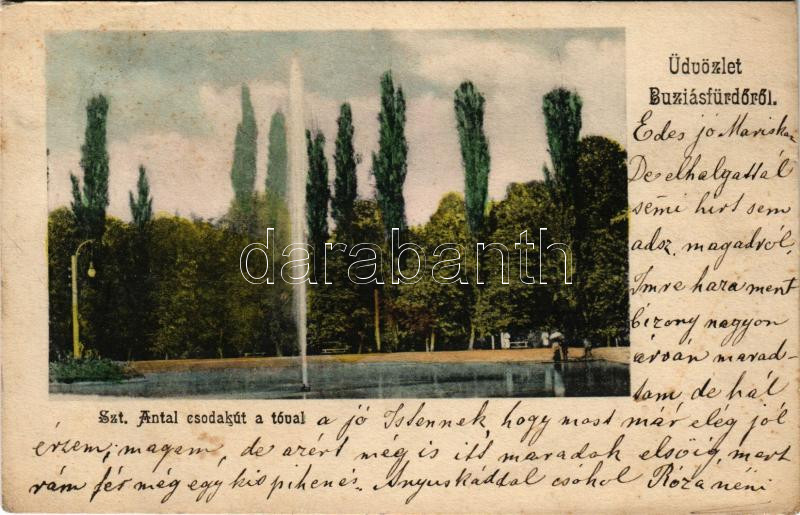 Üdvözlet
Buziásfürdőről.
Edes jó Mariskám
De elhalgattál
sémi hirt sem
adsz magadról,
Imre haza ment
bizony nagyon
árván marad-
tam, de hál
Szt. Antal csodakút a tóval
a jó Istennek hogy most már elég jól
érzem magam, de azért még is itt maradok elsőig, mert
rám fér még egy kis pihenés. Anyuskáddal csókol Róza néni
darabanth